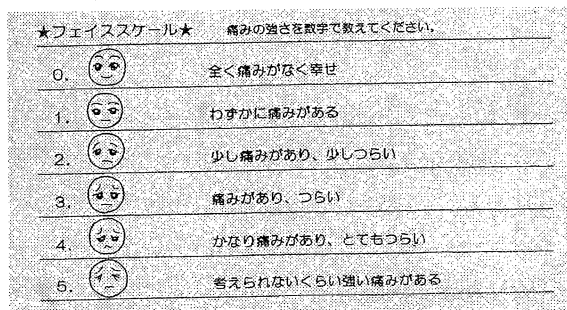 ★フェイススケール★ 痛みの強さを数字で教えてください。
0. 全く痛みがなく幸せ
1. わずかに痛みがある
2. 少し痛みがあり、少しつらい
3. 痛みがあり、つらい
4. かなり痛みがあり、とてもつらい
5. 考えられないくらい強い痛みがある